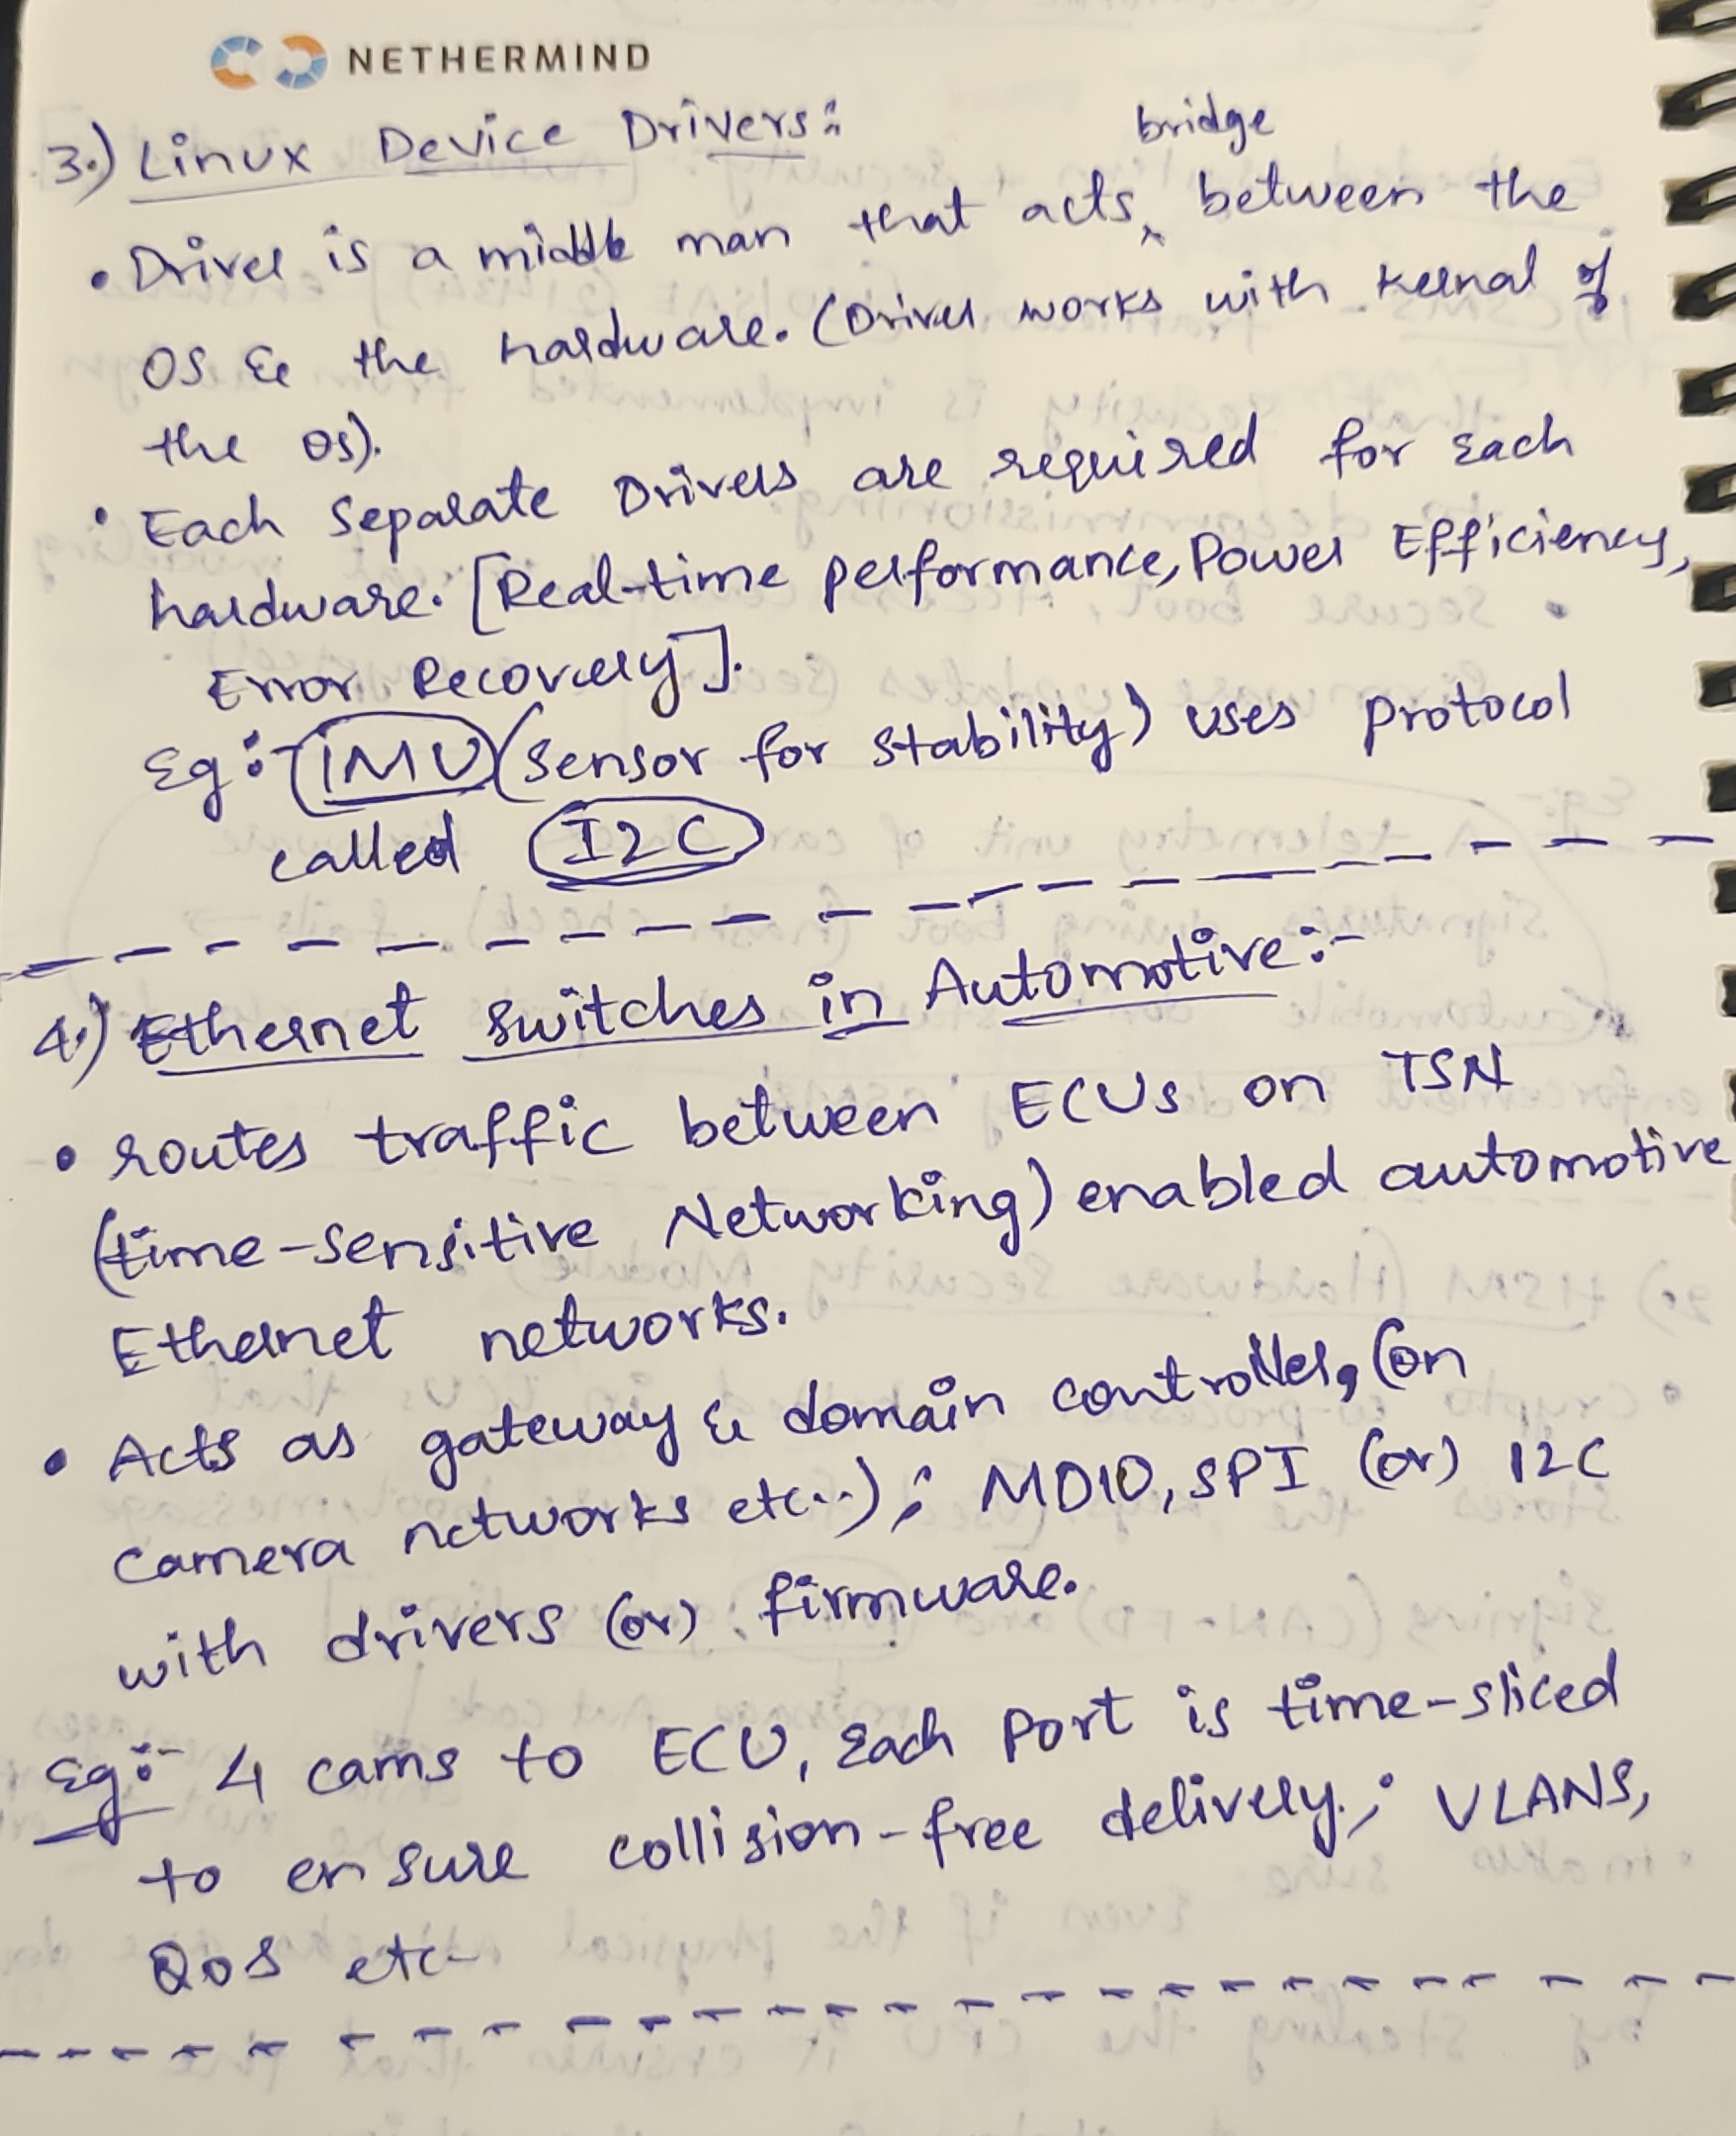 NETHERMIND
3.) Linux Device Drivers:
bridge
• Driver is a middle man that acts ^ between the
OS & the hardware. (Driver works with kernal of
the OS).
• Each Separate Drivers are required for Each
hardware. [Real-time performance, Power Efficiency,
Error Recovery].
Eg:- IMU (Sensor for stability) uses protocol
called I2C
4.) Ethernet switches in Automotive:-
• routes traffic between ECUs on TSN
(time-sensitive Networking) enabled automotive
Ethernet networks.
• Acts as gateway & domain controller, (on
camera networks etc..); MDIO, SPI (or) I2C
with drivers (or) firmware.
Eg:- 4 cams to ECU, Each port is time-sliced
to ensure collision-free delivery.; VLANS,
QoS etc-